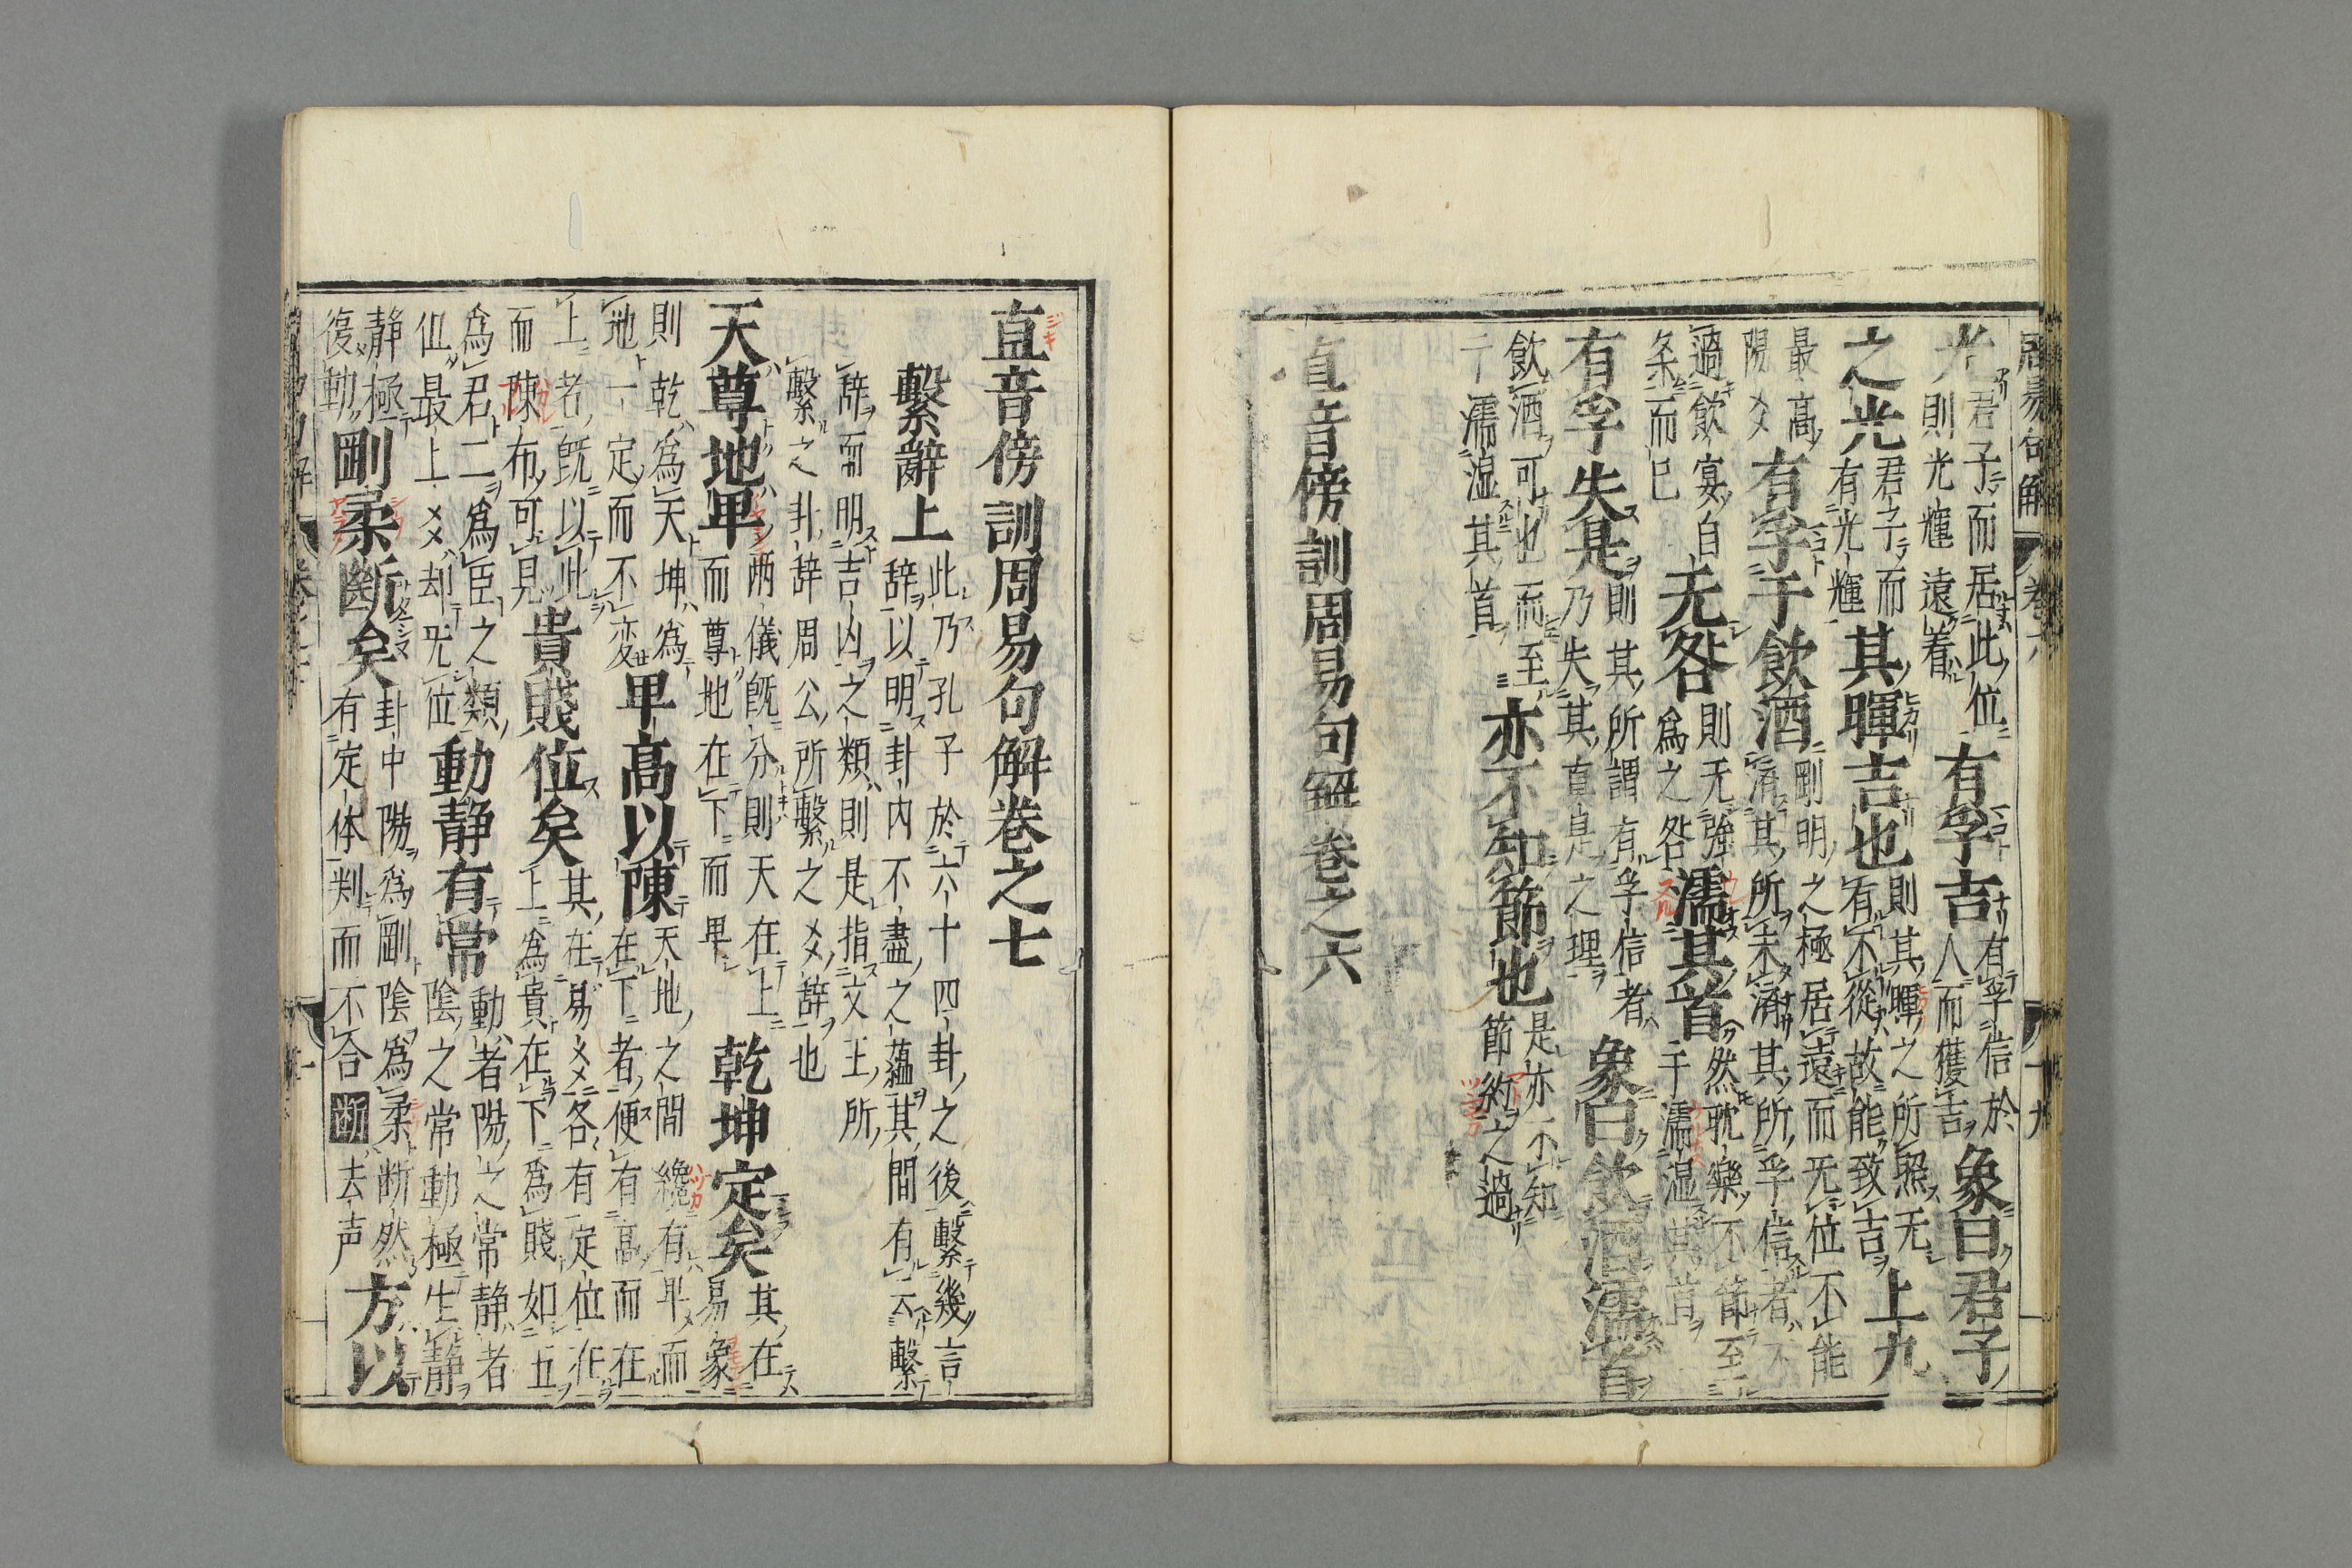 周易句解 卷六 十九
光君子而居此位則光輝遠着有孚吉有孚信於人而獲吉象曰君子
之光君子而有光輝其暉吉也則其暉之所照无有不從故能致吉上九
最高陽爻有孚于飲酒剛明之極居遠而无位不能濟其所未濟其所孚信者不
過飲宴自条而已无咎則无強爲之咎濡其首然耽樂不節至于濡湿其首
有孚失是則其所謂有孚信者乃失其直是之理象曰飲酒濡首
飲酒可也而至于濡湿其首亦不知節也是亦不知節約之過
直音傍訓周易句解卷之六
直音傍訓周易句解卷之七
繫辭上此乃孔子於六十四卦之後繫幾言辞以明卦内不盡之蘊其間有云繫
辞而明吉凶之類則是指文王所繫之卦辞周公所繫之爻辞也
天尊地卑両儀既分則天在上而尊地在下而卑乾坤定矣其在易象
則乾爲天坤爲地一定而不変卑高以陳天地之間纔有卑而在下者便有高而在
上者既以此而陳布可見貴賤位矣其在易爻各有定位在上爲貴在下爲賤如五
爲君二爲臣之類但最上爻却无位動静有常動者陽之常静者陰之常動極生静
静極復動剛柔斷矣卦中陽爲剛陰爲柔断然有定体判而不合断去声方以